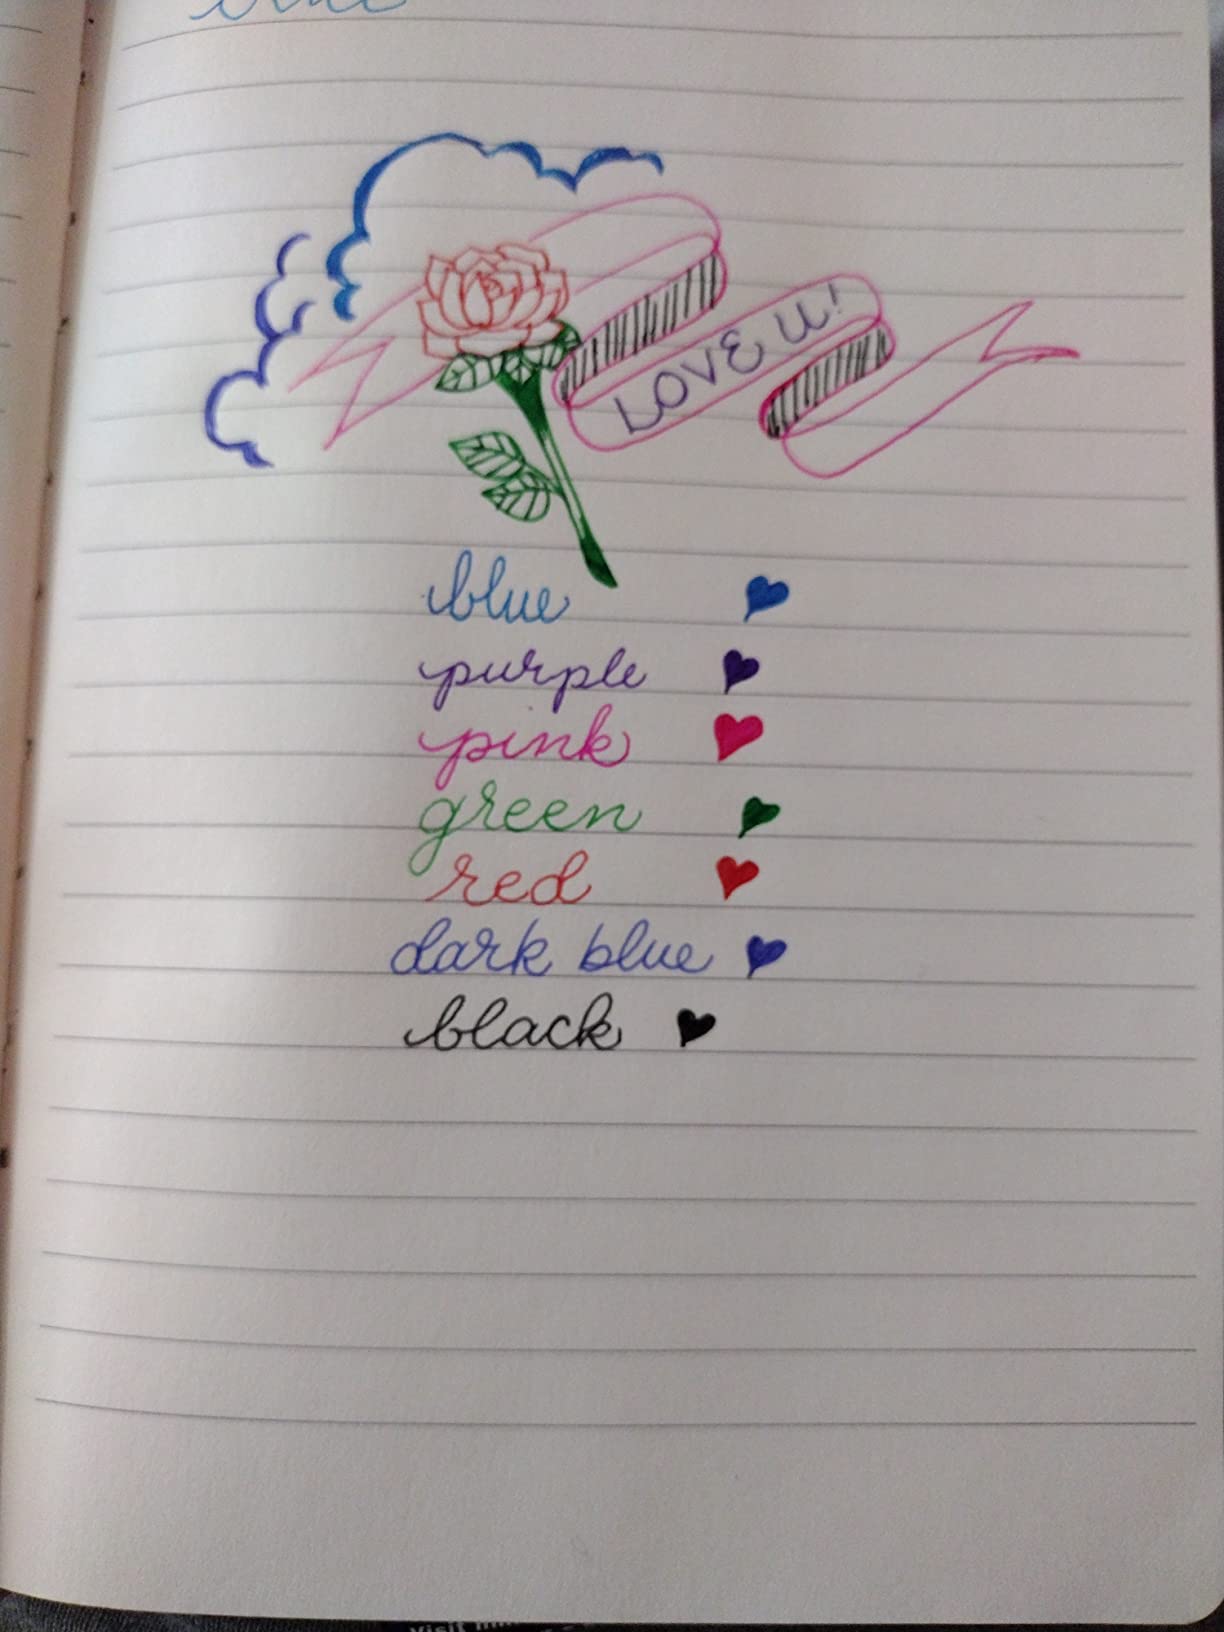 LOVE U!
blue
purple
pink
green
red
dark blue
black
Visit